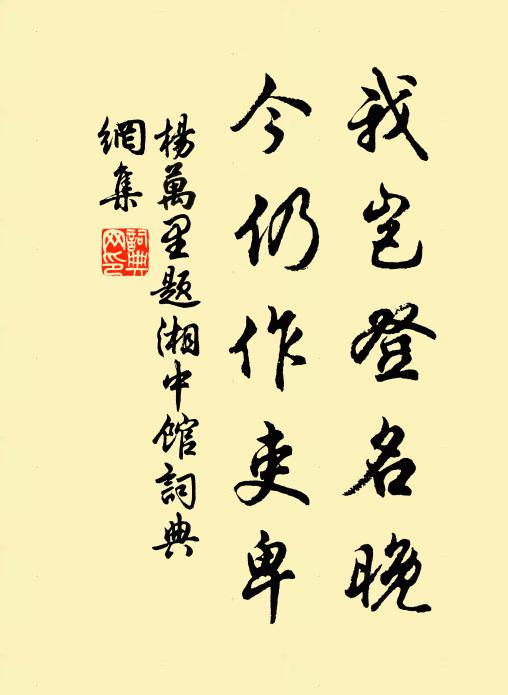 我豈登名晚
今仍作吏卑
楊萬里題湘中館詞典
網集
詞典
网印